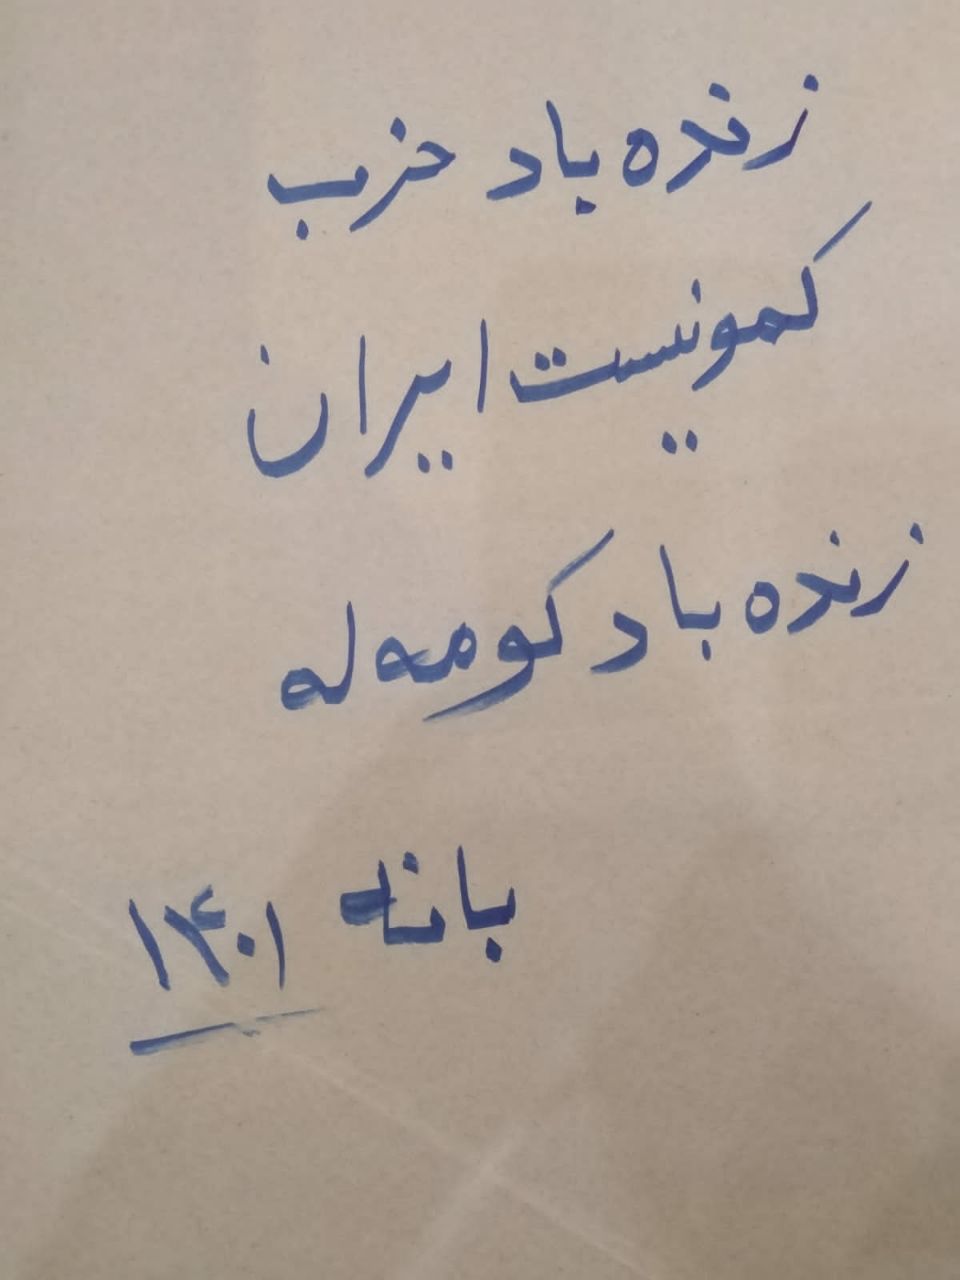 زنده باد حزب
کمونیست ایران
زنده باد کومه له
بانه ۱۴۰۱